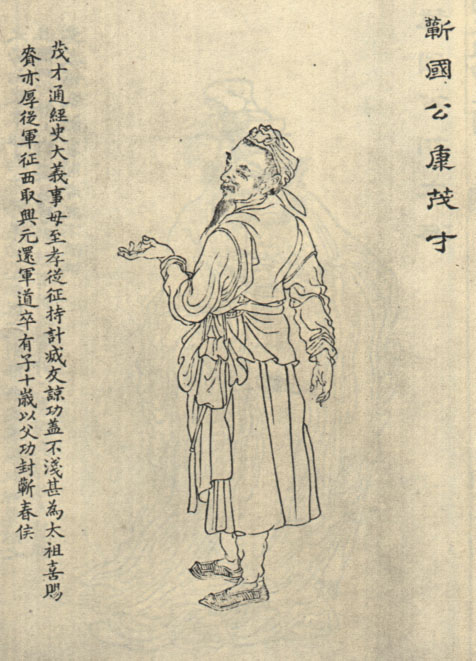 蘄國公康茂才
茂才通經史大義事母至孝從征持計滅友諒功蓋不淺甚為太祖喜賜
賚亦厚從軍征西取興元還軍道卒有子十歲以父功封蘄春侯